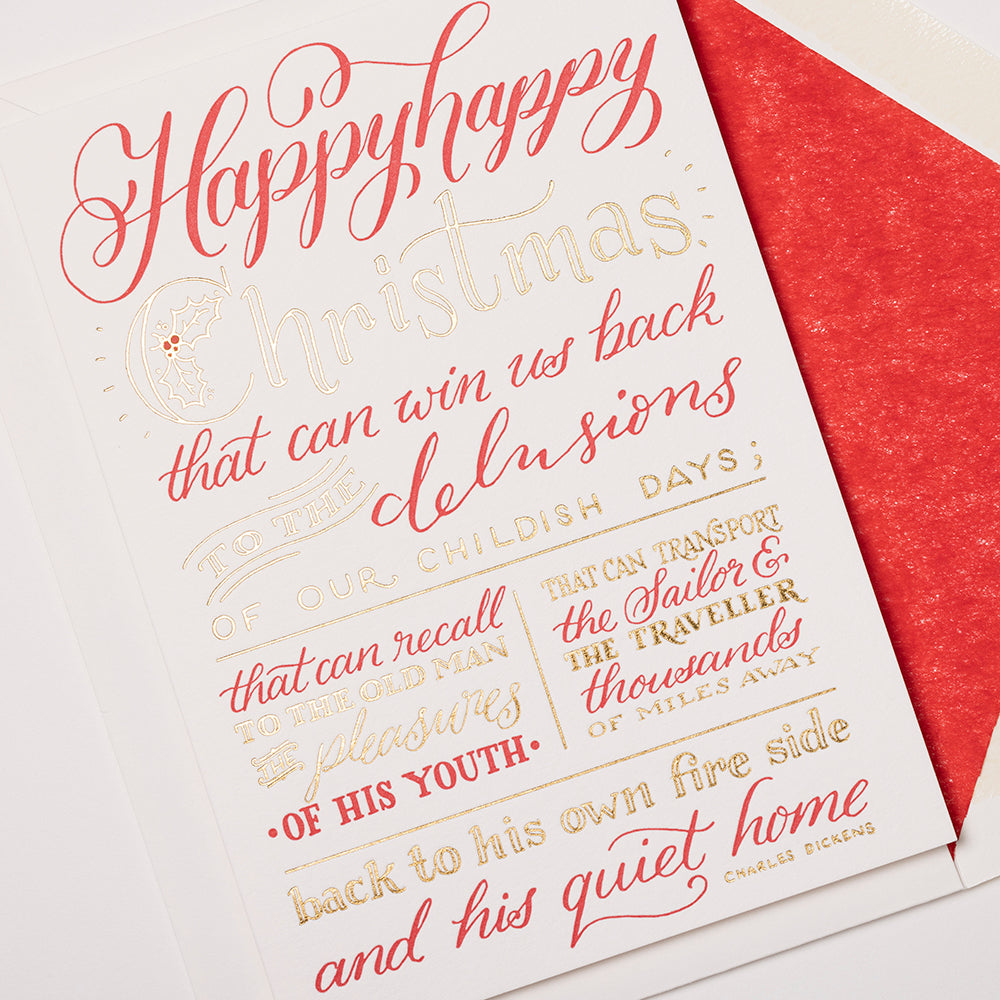 Happy happy
Christmas
that can win us back
TO THE delusions
OF OUR CHILDISH DAYS;
that can recall
TO THE OLD MAN
THE pleasures
•OF HIS YOUTH•
THAT CAN TRANSPORT
the Sailor &
THE TRAVELLER
thousands
OF MILES AWAY
back to his own fire side
and his quiet home
CHARLES DICKENS